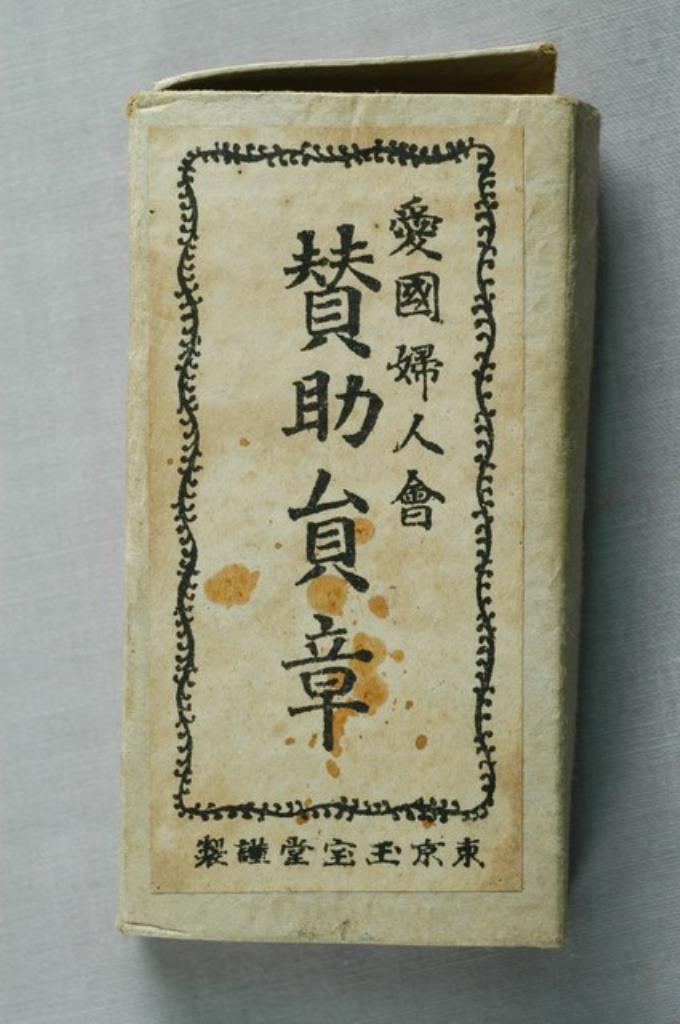 愛國婦人會
賛助員章
東京玉宝堂謹製